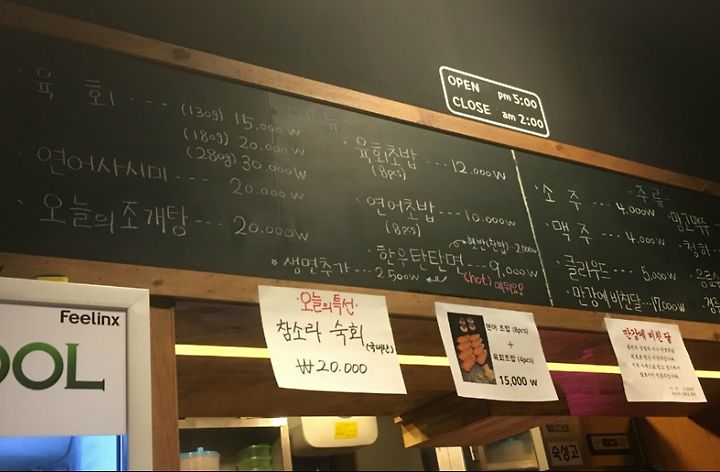 OPEN pm 5:00
CLOSE am 2:00
메뉴
육 회 --- (130g) 15,000 W
(180g) 20,000 W
(280g) 30,000 W
연어사시미 --- 20,000 W
오늘의조개탕 --- 20,000 W
육회초밥 --- 12,000 W
(8pcs)
연어초밥 --- 10,000 W
(8pcs)
한우탄탄면 --- 9,000 W
(hot) 매워요!
* 생면추가 --- 2,500 W
주류
소 주 --- 4,000 W
맥 주 --- 4,000 W
클라우드 --- 5,000 W
만강에비친달 --- 17,000 W
망고맥주
청하
Feelinx
OOL
·오늘의특선·
참소라 숙회
(국내산)
₩20.000
연어 초밥 (8pcs)
+
육회초밥 (4pcs)
15,000 W
만강에 비친 달
숙성고